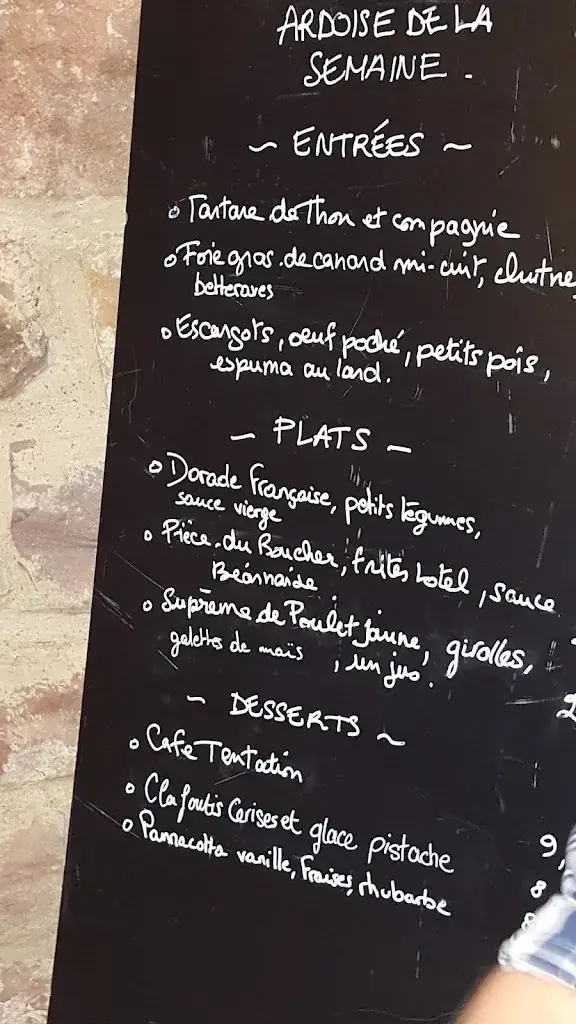 ARDOISE DE LA
SEMAINE.
~ ENTRÉES ~
o Tartare de Thon et compagnie
o Foie gras de canard mi-cuit, chutne
betteraves
o Escargots, oeuf poché, petits pois,
espuma au lard.
- PLATS -
o Dorade Française, petits légumes,
sauce vierge
o Pièce du Boucher, frites hotel, sauce
Béarnaise.
o Suprême de Poulet Jaune, girolles,
galettes de maïs, un jus.
~ DESSERTS ~
o Cafe Tentation
o Clafoutis Cerises et glace pistache 9,
o Pannacotta vanille, Fraises, rhubarbe 8